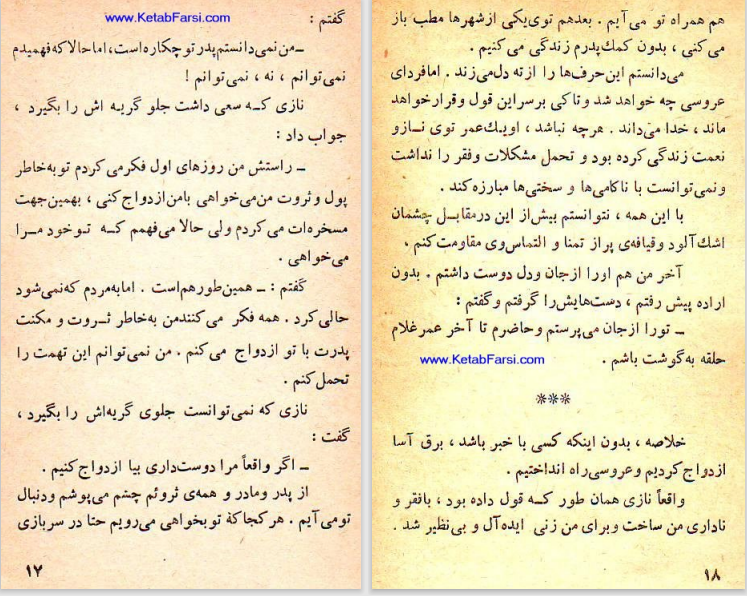 www.KetabFarsi.com
گفتم :
ـ من نمی‌دانستم پدر تو چکاره است، اما حالا که فهمیدم
نمی‌توانم ، نه ، نمی‌توانم !
نازی کــه سعی داشت جلو گریـه اش را بگیرد ،
جواب داد :
ـ راستش من روزهای اول فکر می کردم تو به‌خاطر
پول و ثروت من می‌خواهی با من ازدواج کنی ، بهمین جهت
مسخره‌ات می کردم ولی حالا می‌فهمم کــه تــو خود مــرا
می‌خواهی .
گفتم : ـ همین‌طور هم است . اما به مردم که نمی‌شود
حالی کرد . همه فکر می کنند من به‌خاطر ثــروت و مکنت
پدرت با تو ازدواج می‌کنم . من نمی‌توانم این تهمت را
تحمل کنم .
نازی که نمی‌توانست جلوی گریه‌اش را بگیرد ،
گفت :
ـ اگر واقعاً مرا دوست‌داری بیا ازدواج کنیم .
از پدر ومادر و همه‌ی ثروتم چشم می‌پوشم ودنبال
تو می‌آیم . هر کجا که تو بخواهی می‌رویم حتا در سربازی
۱۷
هم همراه تو می‌آیم . بعدهم توی‌یکی ازشهرها مطب باز
می کنی ، بدون کمك پدرم زندگی می کنیم .
می‌دانستم این حرف‌ها را ازته دل می‌زند . اما فردای
عروسی چه خواهد شد و تا کی برسر این قول وقرار خواهد
ماند ، خدا می‌داند . هرچه نباشد ، او یــك عمر توی نــاز و
نعمت زندگی کرده بود و تحمل مشکلات وفقر را نداشت
ونمی‌توانست با ناکامی‌ها و سختی‌ها مبارزه کند .
با این همه ، نتوانستم بیش‌از این درمقابــل چشمان
اشك آلود وقیافه‌ی پر از تمنا و التماس‌وی مقاومت کنم ،
آخر من هم اورا ازجان ودل دوست داشتم . بدون
اراده پیش رفتم ، دست‌هایش‌را گرفتم وگفتم :
ـ تورا ازجان می‌پرستم وحاضرم تا آخر عمر غلام
حلقه به‌گوشت باشم .
www.KetabFarsi.com
***
خلاصه ، بدون اینکه کسی با خبر باشد ، برق آسا
ازدواج کردیم وعروسی‌راه انداختیم .
واقعاً نازی همان طور کــه قول داده بود ، بافقر و
ناداری من ساخت وبرای من زنی ایده‌آل و بی‌نظیر شد .
۱۸